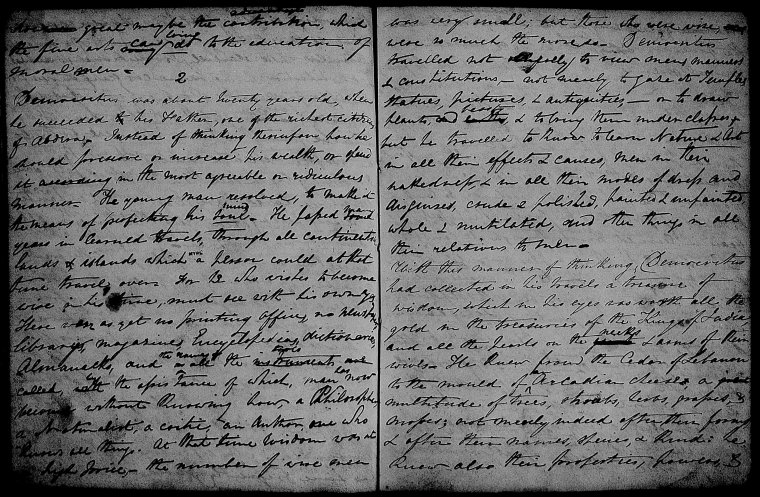 great maybe the contribution, which
the fine arts can do to the education of
moral men -
2
Democritus was about twenty years old, when
he succeeded to his Father, one of the richest citizens
of Abdera. Instead of thinking thereupon how he
should preserve or increase his wealth, or spend
it in the most agreeable or ridiculous
manner - The young man resolved, to make it
the means of perfecting his mind - He passed
years in learned travels, through all continents
lands & islands which a person could at that
time travel over. For he who wishes to become
wise in his time, must see with his own eyes
There were as yet no printing offices, no
Libraries, magazines, Encyclopedias, dictionaries,
Almanacks, and all the
called, with the assistance of which, man now
become without knowing how, a Philosopher
a Naturalist, a critic, an Author, one who
knows all things. At that time Wisdom was at
high price; - the number of wise men
was very small; but those who were wise,
were so much the more so - Democritus
travelled not merely to view mens manners
& constitutions, - not merely to gaze at Temples
statues, pictures, & antiquities - or to draw
plants, and & to bring them under classes,
but he travelled to know to learn Nature & Art
in all their effects & causes, men in their
nakedness, & in all their modes of dress and
disguised, crude & polished, painted & unpainted
whole & mutilated, and other things in all
their relations to men -
With this manner of thinking, Democritus
had collected in his travels a treasure of
wisdom, which in his eyes was worth all the
gold in the treasuries of the King of India
and all the Pearls on the necks & arms of their
wives - He knew from the Cedar of Lebanon
to the mould of Arcadian cheese a
multitude of trees, shrubs, herbs, grasses, &
mosses; not merely indeed after their forms
& after their names, & kind: he
knew also their properties, powers, &